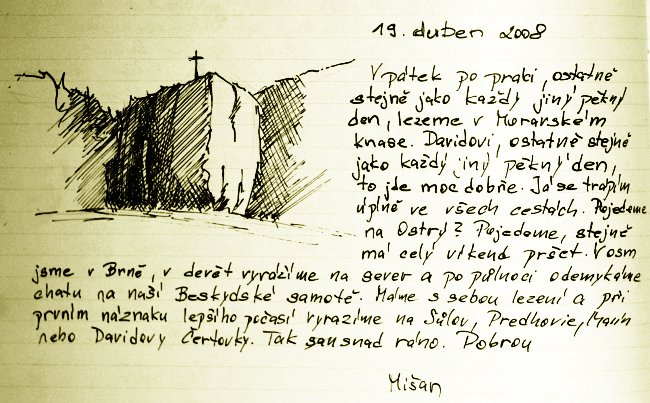 19. duben 2008
V pátek po práci, ostatně
stejně jako každý jiný pěkný
den, lezeme v Moravském
krase. Davidovi, ostatně stejně
jako každý jiný pěkný den,
to jde moc dobře. Já se trápím
úplně ve všech cestách. Pojedeme
na Ostrý? Pojedeme, stejně
má celý víkend pršet. V osm
jsme v Brně, v devět vyrážíme na sever a po půlnoci odemykáme
chatu na naší Beskydské samotě. Máme s sebou lezení a při
prvním náznaku lepšího počasí vyrazíme na Súlov, Predhorie, Manín
nebo Davidovy Čertovky. Tak san snad ráno. Dobrou
Mišan